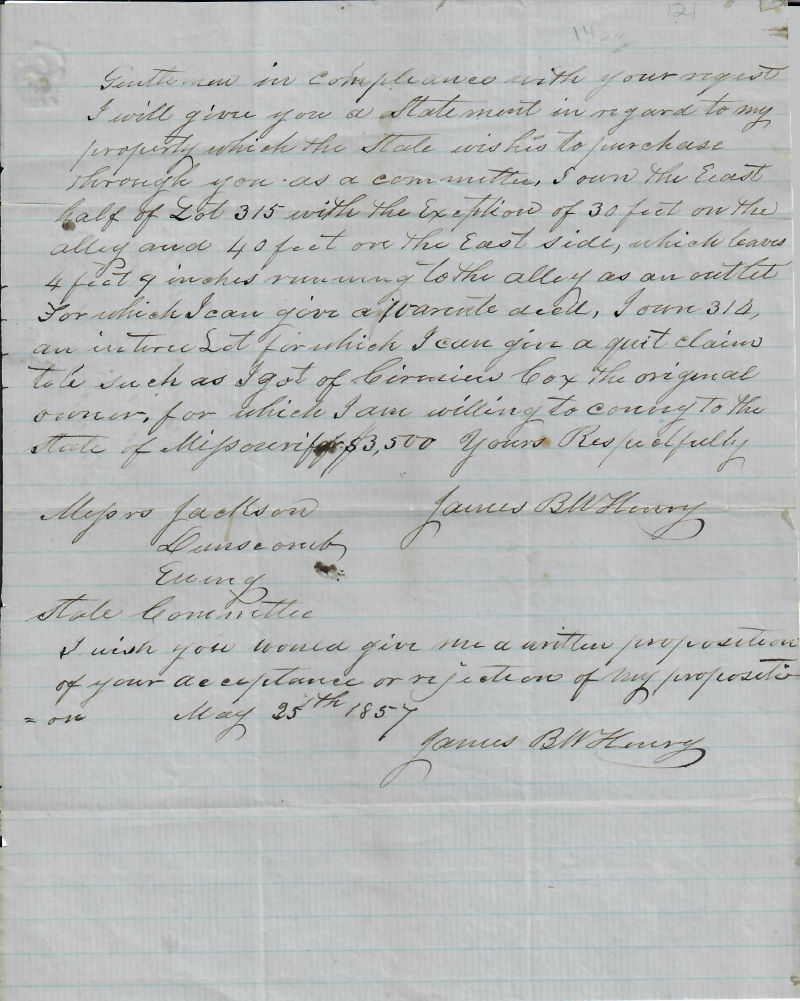 121
Gentlemen in compliance with your reqest
I will give you a Statement in regard to my
property which the State wishes to purchase
through you as a committee, I own the East
half of Lot 315 with the Exception of 30 feet on the
alley and 40 feet on the East side, which leaves
4 feet 9 inches running to the alley as an outlet
For which I can give a Warente deed, I own 314,
an intire Lot for which I can give a quit claim
tole such as I got of Cox the original
owner, for which I am willing to convey to the
State of Missouri for $3,500 Yours Respectfully
Messrs Jackson James BW Henry
Dunscomb
Ewing
State Committee
I wish you would give me a written proposition
of your acceptance or rejection of my propositi
= on May 25th 1857
James BW Henry